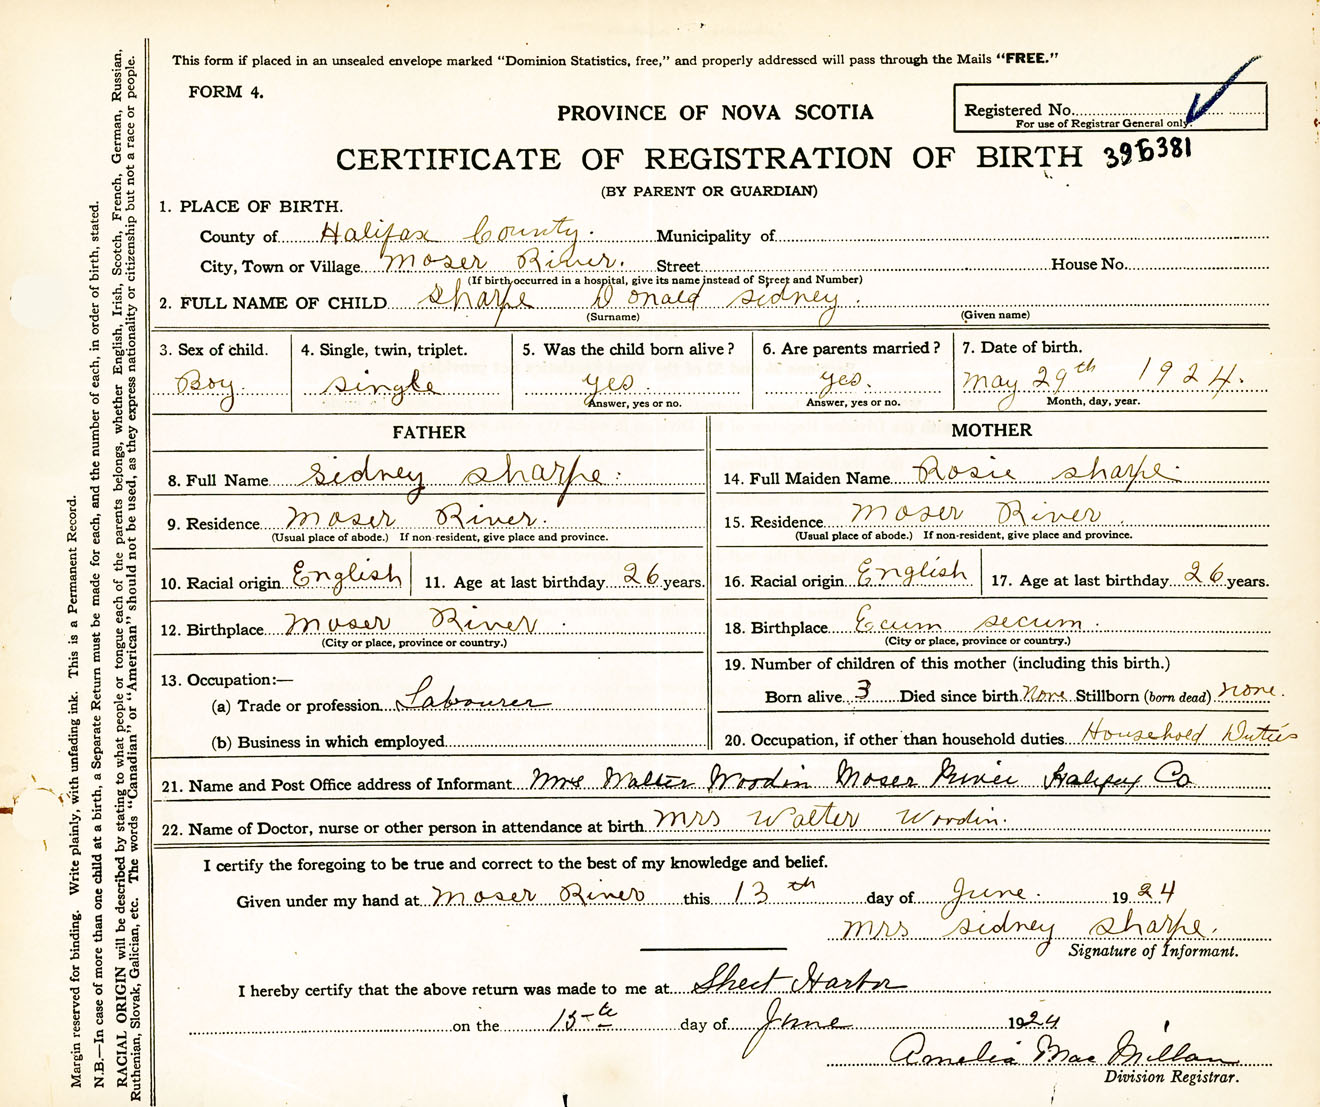 This form if placed in an unsealed envelope marked "Dominion Statistics, free," and properly addressed will pass through the Mails "FREE."
FORM 4.
PROVINCE OF NOVA SCOTIA
Registered No.
For use of Registrar General only.
CERTIFICATE OF REGISTRATION OF BIRTH 396381
(BY PARENT OR GUARDIAN)
1. PLACE OF BIRTH.
County of Halifax County. Municipality of
City, Town or Village Moser River. Street House No.
(If birth occurred in a hospital, give its name instead of Street and Number)
2. FULL NAME OF CHILD Sharpe Donald Sidney.
(Surname) (Given name)
3. Sex of child. 4. Single, twin, triplet. 5. Was the child born alive? 6. Are parents married? 7. Date of birth.
Boy. single yes. yes. May 29th 1924.
Answer, yes or no. Answer, yes or no. Month, day, year.
FATHER MOTHER
8. Full Name Sidney Sharpe. 14. Full Maiden Name Rosie Sharpe.
9. Residence Moser River. 15. Residence Moser River.
(Usual place of abode.) If non-resident, give place and province. (Usual place of abode.) If non-resident, give place and province.
10. Racial origin English 11. Age at last birthday 26 years. 16. Racial origin English 17. Age at last birthday 26 years.
12. Birthplace Moser River. 18. Birthplace Ecum Secum.
(City or place, province or country.) (City or place, province or country.)
19. Number of children of this mother (including this birth.)
13. Occupation:—
(a) Trade or profession Labourer Born alive 3 Died since birth None Stillborn (born dead) none.
(b) Business in which employed 20. Occupation, if other than household duties Household Duties
21. Name and Post Office address of Informant Mrs Walter Woodin Moser River Halifax Co
22. Name of Doctor, nurse or other person in attendance at birth Mrs Walter Woodin.
I certify the foregoing to be true and correct to the best of my knowledge and belief.
Given under my hand at Moser River this 13th day of June. 1924
Mrs Sidney Sharpe.
Signature of Informant.
I hereby certify that the above return was made to me at Sheet Harbor
on the 15th day of June 1924
Amelia MacMillan
Division Registrar.
Margin reserved for binding. Write plainly, with unfading ink. This is a Permanent Record.
N.B.—In case of more than one child at a birth, a Separate Return must be made for each, and the number of each, in order of birth, stated.
RACIAL ORIGIN will be described by stating to what people or tongue each of the parents belongs, whether English, Irish, Scotch, French, German, Russian,
Ruthenian, Slovak, Galician, etc. The words "Canadian" or "American" should not be used, as they express nationality or citizenship but not a race or people.